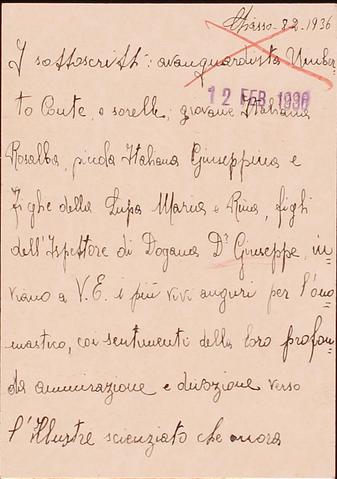 Chiasso - 8.2.1936
I sottoscritti: avanguardista Umber=
12 FEB 1936
to Conte, e sorelle, giovane Italiana
Rosalba, piccola Italiana Giuseppina e
Fighe della Lupa Maria e Rina, figli
dell'Ispettore di Dogana Dr Giuseppe, in=
viano a V.E. i più vivi auguri per l'ono=
mastico, coi sentimenti della loro profon=
da ammirazione e divozione verso
l'Illustre scienziato che onora